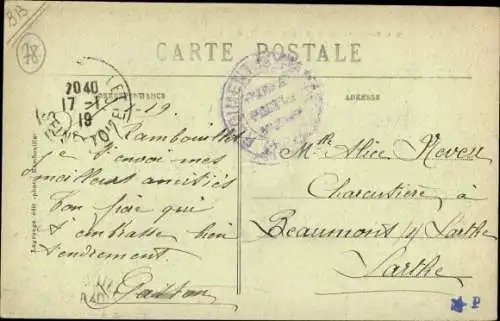 BB
78
CARTE POSTALE
CORRESPONDANCE
ADRESSE
20 40
17 - 1
19
1-19
Rambouillet
je t'envoi mes
meilleurs amitiés
Ton frère qui
t'embrasse bien
tendrement.
Gaston
Mlle Alice Neveu
Charcutière à
Beaumont s/ Sarthe
Sarthe
P